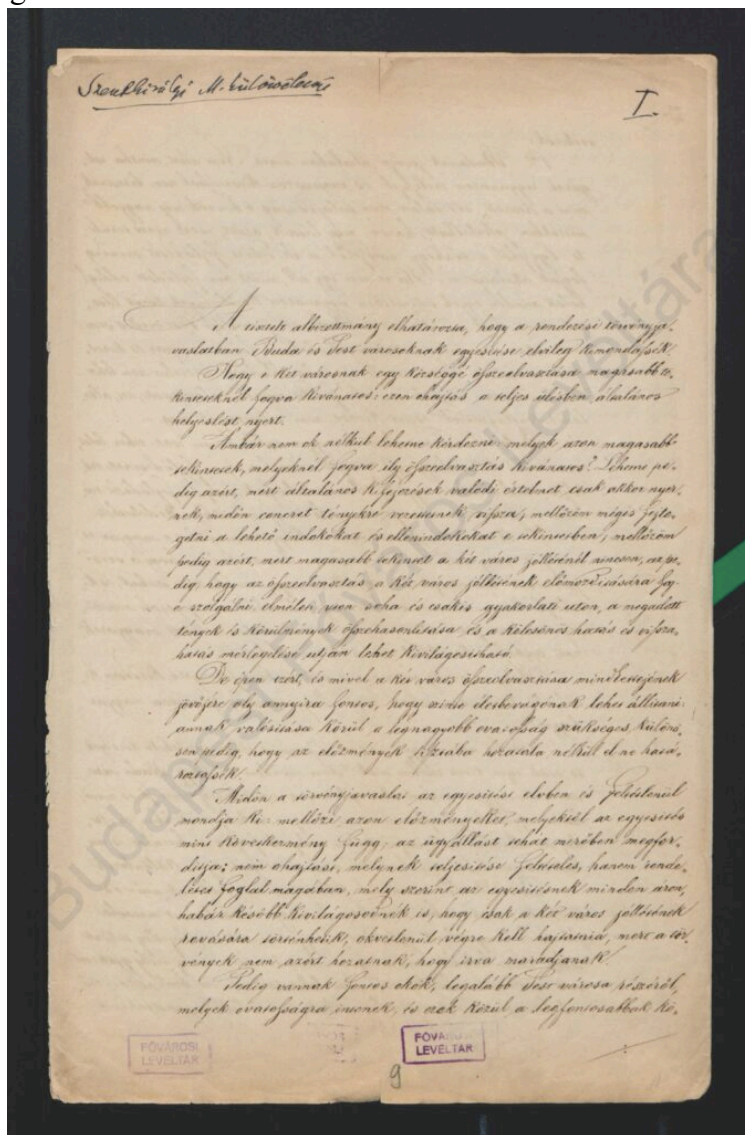 Szentkirályi M. különvélemé
I.
A tisztelt albizottmány elhatározta, hogy a rendezési törvényja-
vaslatban Buda és Pest városoknak egyesítése elvileg kimondassék.
Hogy e két városnak egy községgé összeolvasztása magasabb te-
kinteteknél fogva kívánatos: ezen óhajtás a teljes ülésben általános
helyeslést nyert.
Ámbár nem ok nélkül lehetne kérdezni melyek azon magasabb
tekintetek, melyeknél fogva ily összeolvasztás kívánatos? Lehetne pe-
dig azért, mert általános kifejezések valódi értelmet csak akkor nyer-
nek, midőn concret tényekre vezettetnek vissza, mellőzöm mégis fejte-
getni a lehető indokokat és ellenindokokat e tekintetben, mellőzöm
pedig azért, mert magasabb tekintet a két város jólléténél nincsen, az pe-
dig, hogy az összeolvasztás a két város jóllétének előmozdítására fog-
e szolgálni elmélet soha és csakis gyakorlati uton, a megadott
tények és körülmények összehasonlítása és a kölcsönös hatás és vissza-
hatás mérlegelése utján lehet kivilágosítható.
De épen ezért, és mivel a két város összeolvasztása mindkettejének
jövőjére oly annyira fontos, hogy szinte életbevágónak lehet állítani:
annak valósítása körül a legnagyobb ovatosság szükséges, különö-
sen pedig, hogy az előzmények tisztába hozatala nélkül el ne hatá-
roztassék.
Midőn a törvényjavaslat az egyesítést elvben és feltétlenül
mondja ki: mellőzi azon előzményeket, melyektől az egyesítés
mint következmény függ, az ügyállást tehát merőben megfor-
dítja; nem óhajtást, melynek teljesítése feltételes, hanem rende-
letet foglal magában, mely szerint az egyesítésnek minden áron,
habár később kivilágosodnék is, hogy csak a két város jóllétének
rovására történhetik, okvetlenül végre kell hajtatnia, mert a tör-
vények nem azért hozatnak, hogy írva maradjanak.
Pedig vannak fontos okok, legalább Pest városa részéről,
melyek ovatosságra intenek, és ezek közül a legfontosabbak kö-
FŐVÁROSI
LEVÉLTÁR
FŐVÁROSI
LEVÉLTÁR
9
Budapest Főváros Levéltára